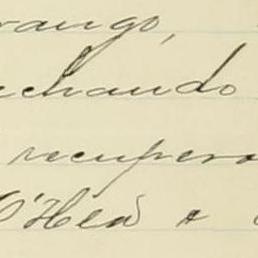 rango,
chando
recupera
O'Hea &